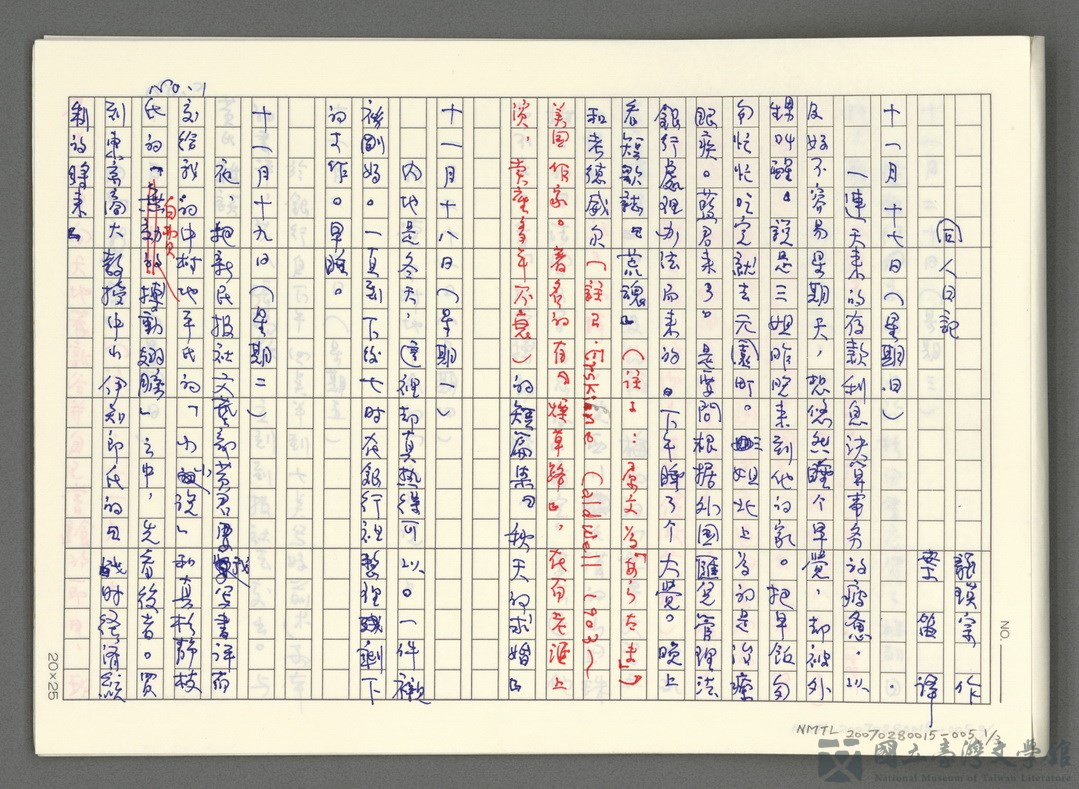 No. 1
同人日記
龍瑛宗 作
葉笛 译
十一月十七日(星期日)
一連天来的存款利息決算事务的疲惫,以
及好不容易星期天,想悠然睡个早覺,却被外
甥叫醒。說是三姐昨晚来到他的家。把早飯匆
匆忙忙吃完就去元園町。三姐北上為的是治療
眼疾。藍君来了。是要問根据外国匯兌管理法
銀行處理办法而来的。下午睡了个大覺。晚上
看短歌誌『荒魂』(注1:原文為「あらたま」)
和考德威尔(註2.Erskine Caldwell 1903~
美国作家。著名的有『煙草路』,在百老滙上
演,賣座多年不衰)的短篇集『秋天的求婚』
十一月十八日(星期一)
内地是冬天,這裡却真熱得可以。一件襯
衫剛好。一直到下後七时在銀行裡整理殘剩下
的工作。早睡。
十一月十九日(星期二)
夜,把新民报社文藝部黄君要我写書评而
交给我的中村地平氏的「小說」和真杉静枝
氏的「
」之中,先看後者。買
到東京商大教授中山伊知郎氏的『战时經濟
到的歸来』
20×25
NO.
NMTL 20070280015-005 1/3
國立臺灣文學館
National Museum of Taiwan Literature